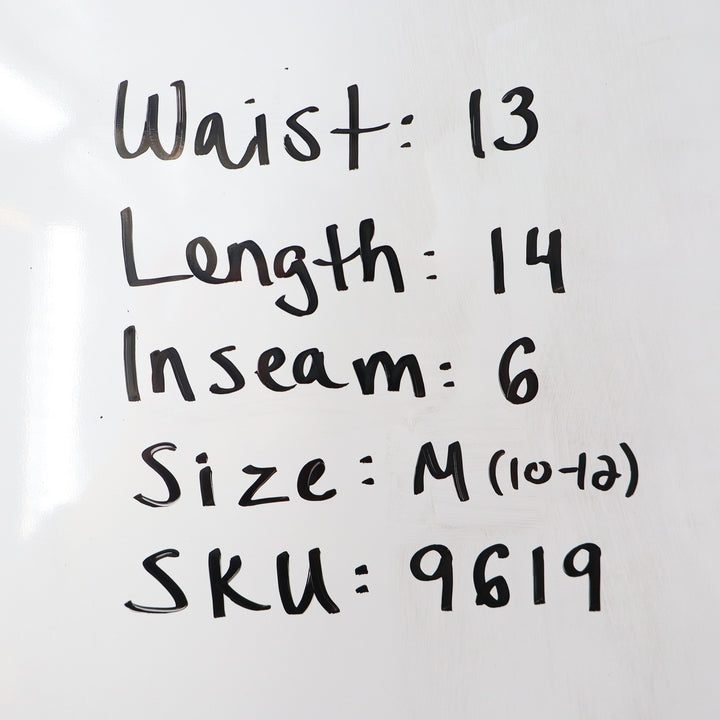 Waist: 13
Length: 14
Inseam: 6
Size: M (10-12)
SKU: 9619